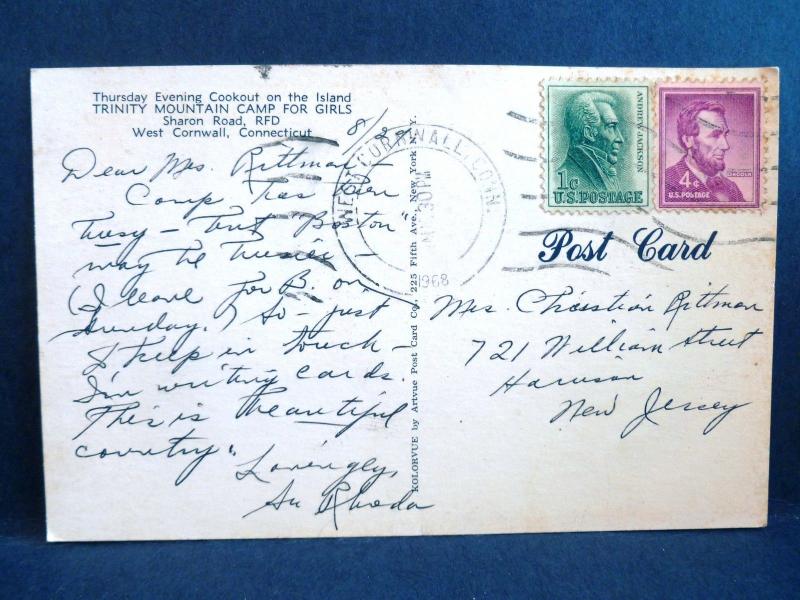 Thursday Evening Cookout on the Island
TRINITY MOUNTAIN CAMP FOR GIRLS
Sharon Road, RFD
West Cornwall, Connecticut
8/29
Dear Mrs. Rittman -
Camp has been
busy - but "Boston"
may be busier -
(I leave for B. on
Sunday.) So - just
to keep in touch -
I'm writing cards.
This is beautiful
country.
Lovingly,
Rhoda
KOLORVUE by Artvue Post Card Co., 225 Fifth Ave., New York N. Y.
WEST CORNWALL, CONN.
30 PM
1968
ANDREW JACKSON
1c
U.S. POSTAGE
LINCOLN
4¢
U.S. POSTAGE
Post Card
Mrs. Christian Rittman
721 William Street
Harrison
New Jersey